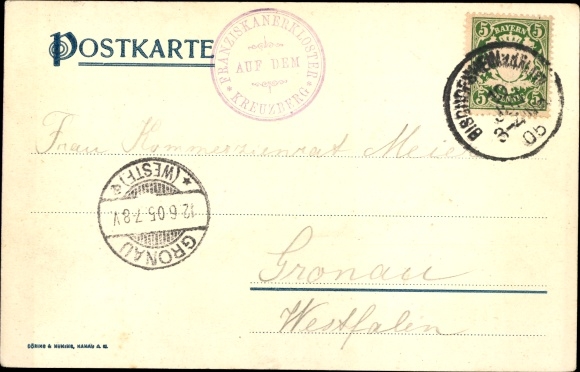 POSTKARTE
FRANZISKANERKLOSTER
AUF DEM
KREUZBERG
5 BAYERN 5
5 PFENNIG 5
BISCHOFSHEIM
05
Frau Kommerzienrat Meier
(WESTF)
12.6.05.7-8V.
GRONAU
Gronau
Westfalen
DÖRING & HUNING, HANAU A. M.